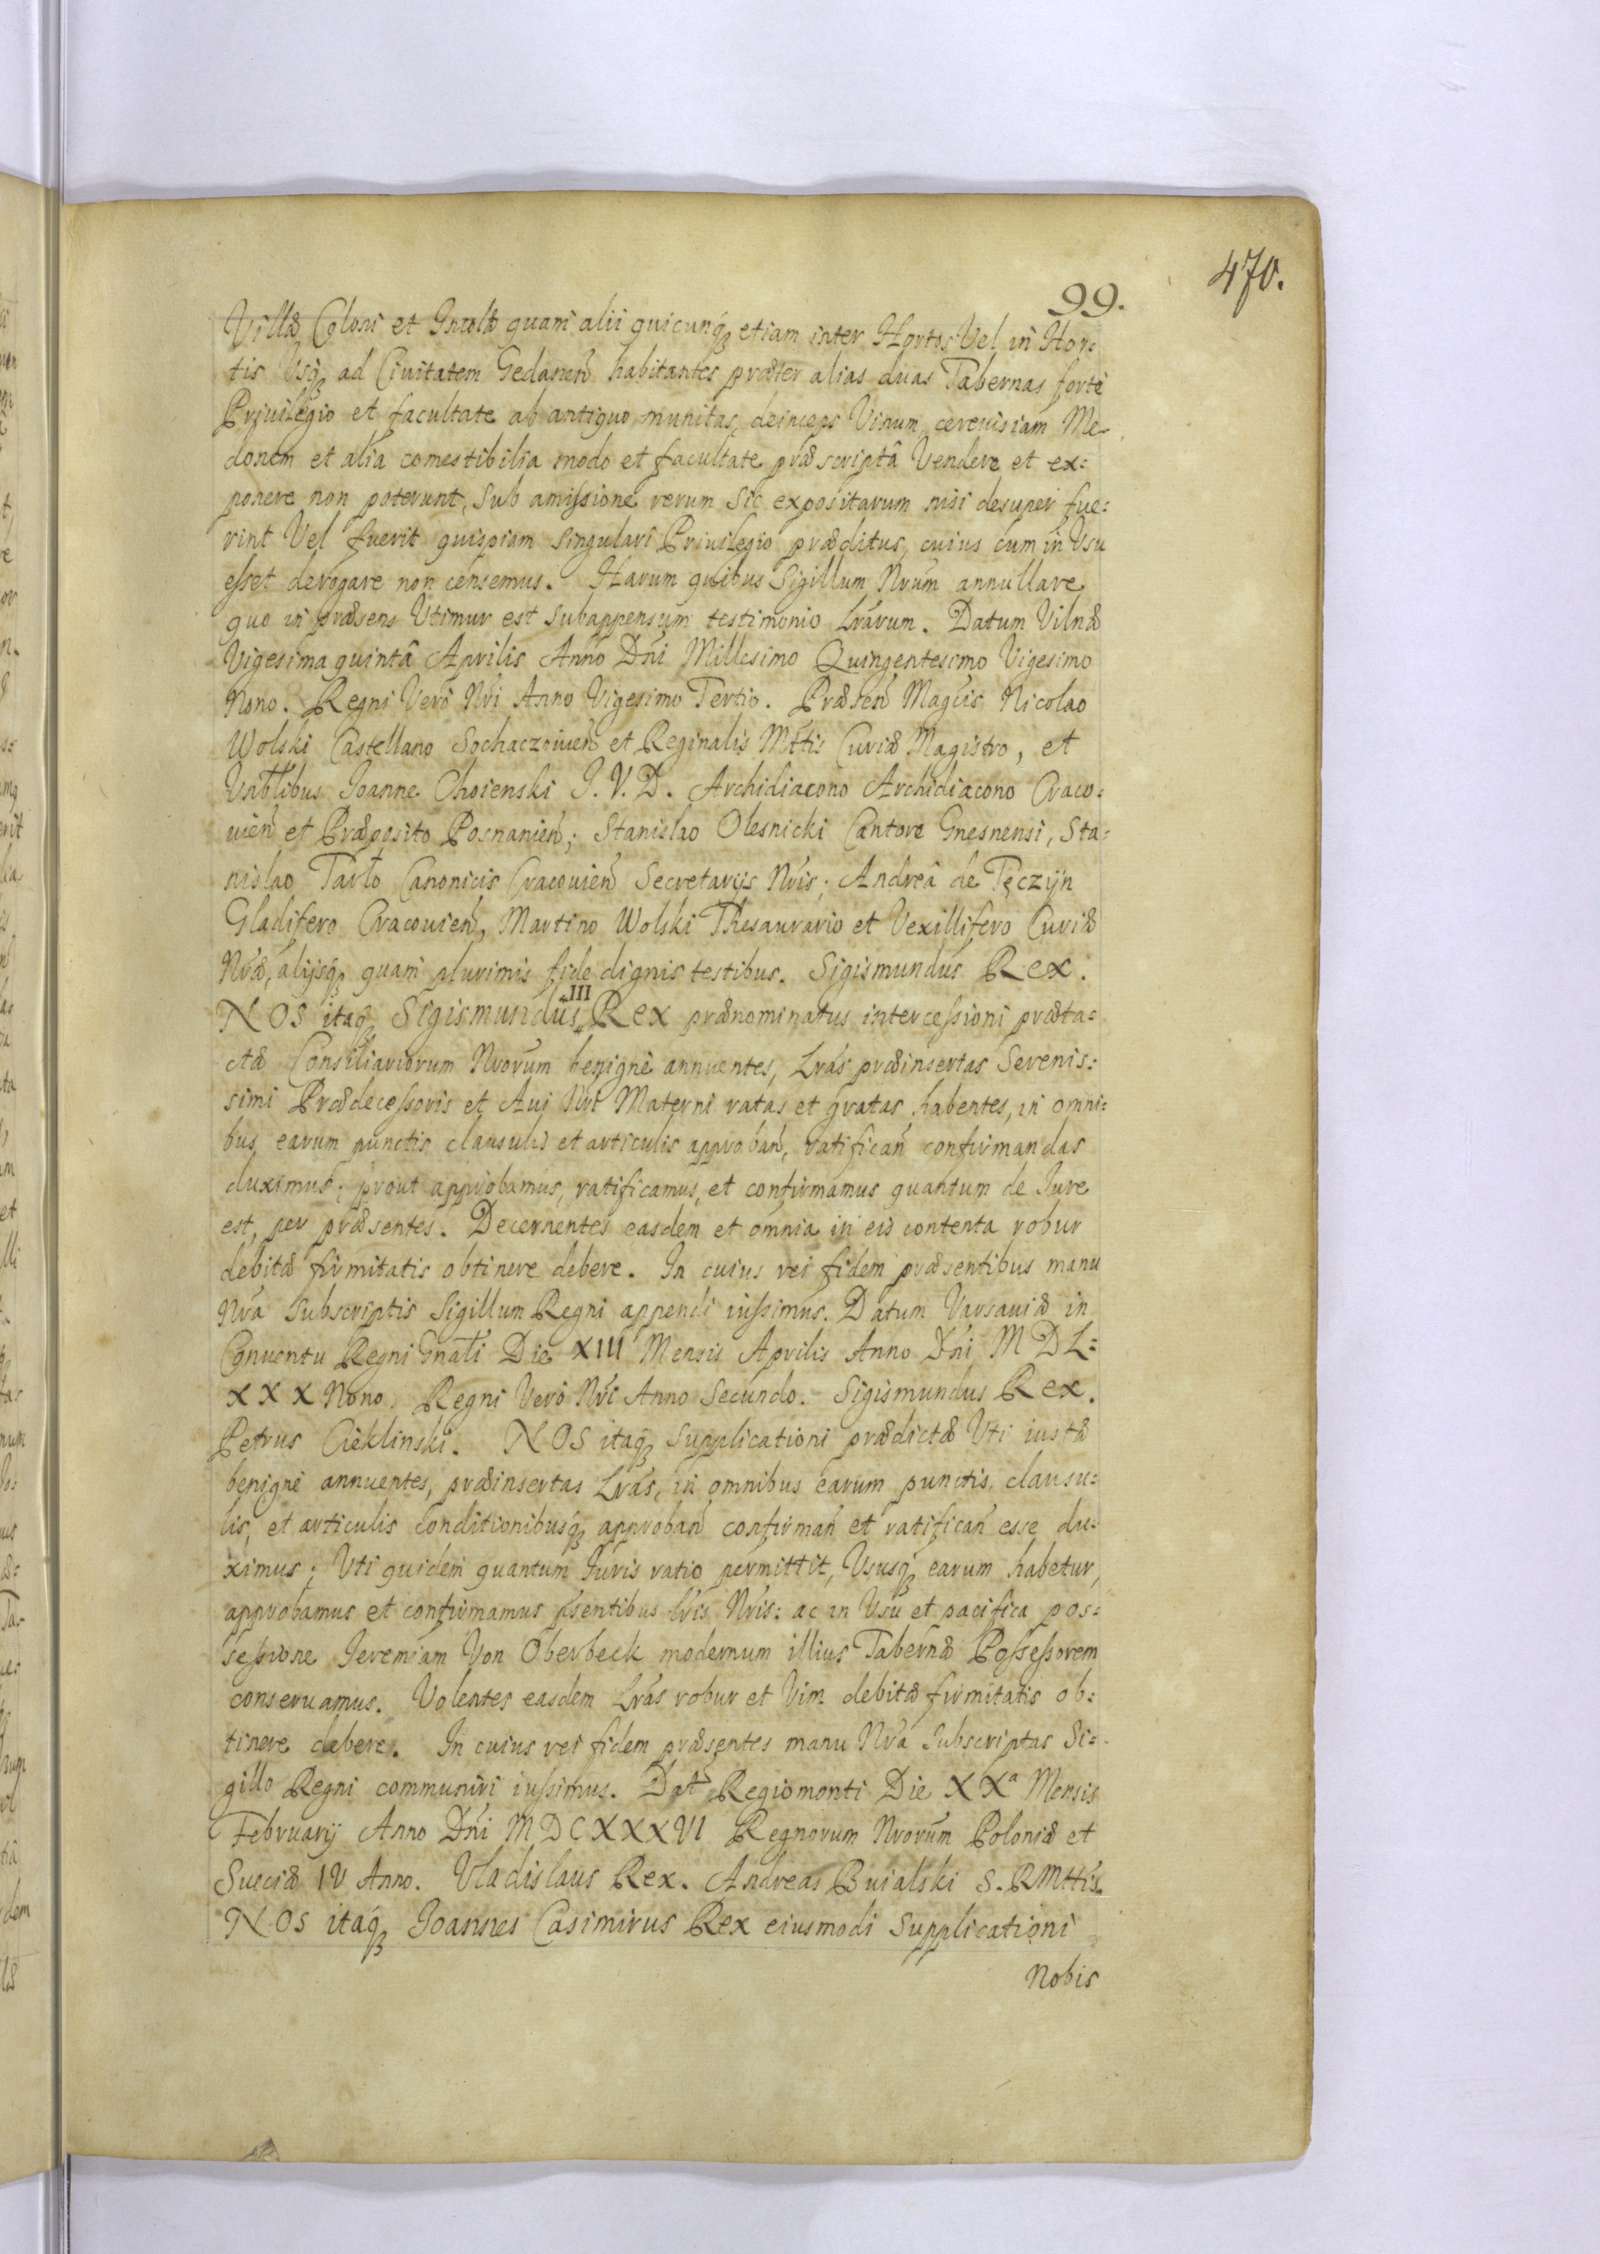 470.
99.
Villæ Coloni et Incolæ quam alii quicunqꝫ etiam inter Hortos Vel in Hor:
tis Vsqꝫ ad Ciuitatem Gedanen̄ habitantes præter alias duas Tabernas forte
Priuilegio et facultate ab antiquo munitas, deinceps Vinum cereuisiam Me-
donem et alia comestibilia modo et facultate præscriptâ Vendere et ex:
ponere non poterunt, sub amissione rerum sic expositarum nisi desuper fue:
rint Vel fuerit quispiam singulari Priuilegio præditus, cuius cum in Vsu
esset derogare non censemus. Harum quibus Sigillum Nrum annullare
quo in præsens Vtimur est subappensum testimonio Lrarum. Datum Vilnæ
Vigesima quintâ Aprilis Anno Dni Millesimo Quingentesimo Vigesimo
Nono. Regni Vero Nri Anno Vigesimo Tertio. Præsen̄ Magcis Nicolao
Wolski Castellano Sochaczouien̄ et Reginalis Mttis Curiæ Magistro, et
Vnblibus Joanne Choienski J.V.D. Archidiacono Archidiacono Craco:
uien̄ et Præposito Posnanien̄; Stanislao Olesnicki Cantore Gnesnensi, Sta:
nislao Tarło Canonicis Cracouien̄ Secretarijs Nris; Andreâ de Tęczyn
Gladifero Cracouien̄, Martino Wolski Thesaurario et Vexillifero Curiæ
Nræ, alijsqꝫ quam plurimis fide dignis testibus. Sigismundus Rex.
NOS itaqꝫ Sigismundus III Rex prænominatus intercessioni præta:
ctæ Consiliariorum Nrorum benigne annuentes, Lras præinsertas Serenis:
simi Prædecessoris et Aui Nri Materni ratas et gratas habentes, in omni:
bus earum punctis clausulis et articulis approban̄, ratifican̄ confirmandas
duximus; prout approbamus, ratificamus, et confirmamus quantum de Jure
est, per præsentes. Decernentes easdem et omnia in eis contenta robur
debitæ firmitatis obtinere debere. In cuius rei fidem præsentibus manu
Nra subscriptis Sigillum Regni appendi iussimus. Datum Varsauiæ in
Conuentu Regni Gnali Die XIII Mensis Aprilis Anno Dni MDL:
XXX Nono, Regni Vero Nri Anno Secundo. Sigismundus Rex.
Petrus Cieklinski. NOS itaqꝫ supplicationi prædictæ Vti iustæ
benigne annuentes, præinsertas Lras, in omnibus earum punctis, clausu:
lis, et articulis conditionibusqꝫ approban̄ confirman̄ et ratifican̄ esse du:
ximus; Vti quidem quantum Juris ratio permittit, Vsusqꝫ earum habetur,
approbamus et confirmamus psentibus Lris Nris: ac in Vsu et pacifica pos:
sessione Jeremiam Von Oberbeck modernum illius Tabernæ Possessorem
conseruamus. Volentes easdem Lras robur et Vim debitæ firmitatis ob:
tinere debere. In cuius rei fidem præsentes manu Nra Subscriptas Si:
gillo Regni communiri iussimus. Dat Regiomonti Die XXa Mensis
Februarij Anno Dni MDCXXXVI Regnorum Nrorum Poloniæ et
Sueciæ IV Anno. Vladislaus Rex. Andreas Buialski S.RMttis
NOS itaqꝫ Joannes Casimirus Rex eiusmodi Supplicationi
Nobis